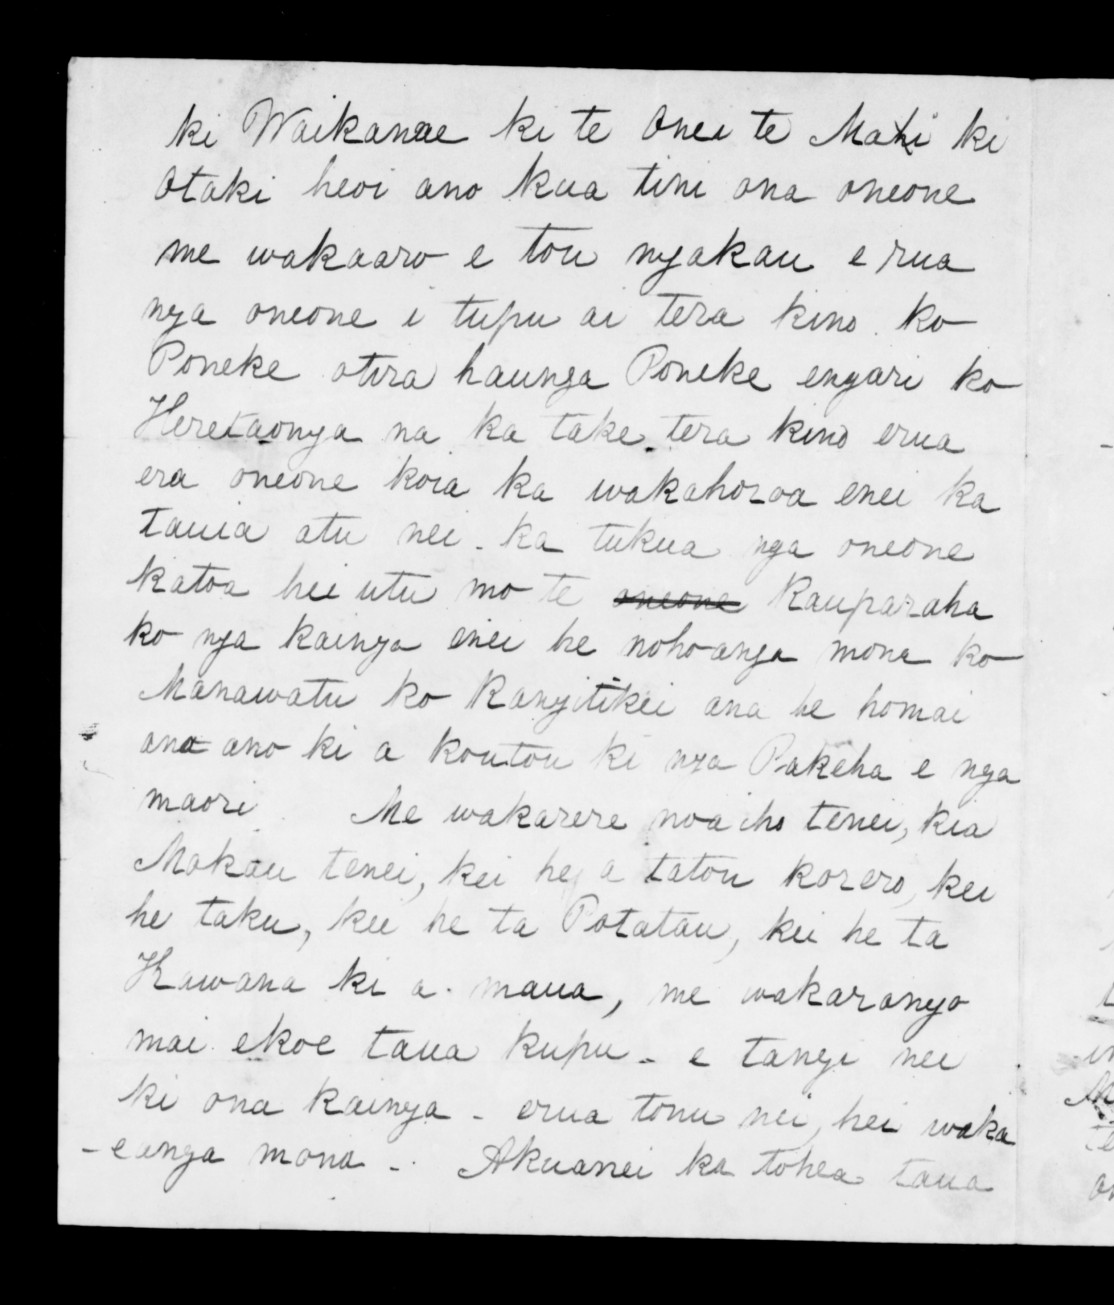 ki Waikanae ki te Onei te Mahi ki
Otaki heoi ano kua tini ona oneone
me wakaaro e tou ngakau e rua
nga oneone i tupu ai tera kino. ko
Poneke otira haunga Poneke engari ko
Heretaonga na ka take tera kino erua
era oneone koia ka wakahoroa enei ka
tauia atu nei - ka tukua nga oneone
katoa hei utu mo te oneone Rauparaha
ko nga kainga enei he nohoanga mona ko
Manawatu ko Rangitikei ana he homai
ana ano ki a koutou ki nga Pakeha e nga
maori Me wakarere noa iho tenei, kia
Mokau tenei, kei he a tatou korero, kei
he taku, kei he ta Potatau, kei he ta
Kawana ki a maua, me wakarongo
mai ekoe taua kupu - e tangi nei
ki ona kainga - erua tonu nei, hei waka
-einga mona - Akuanei ka tohea taua